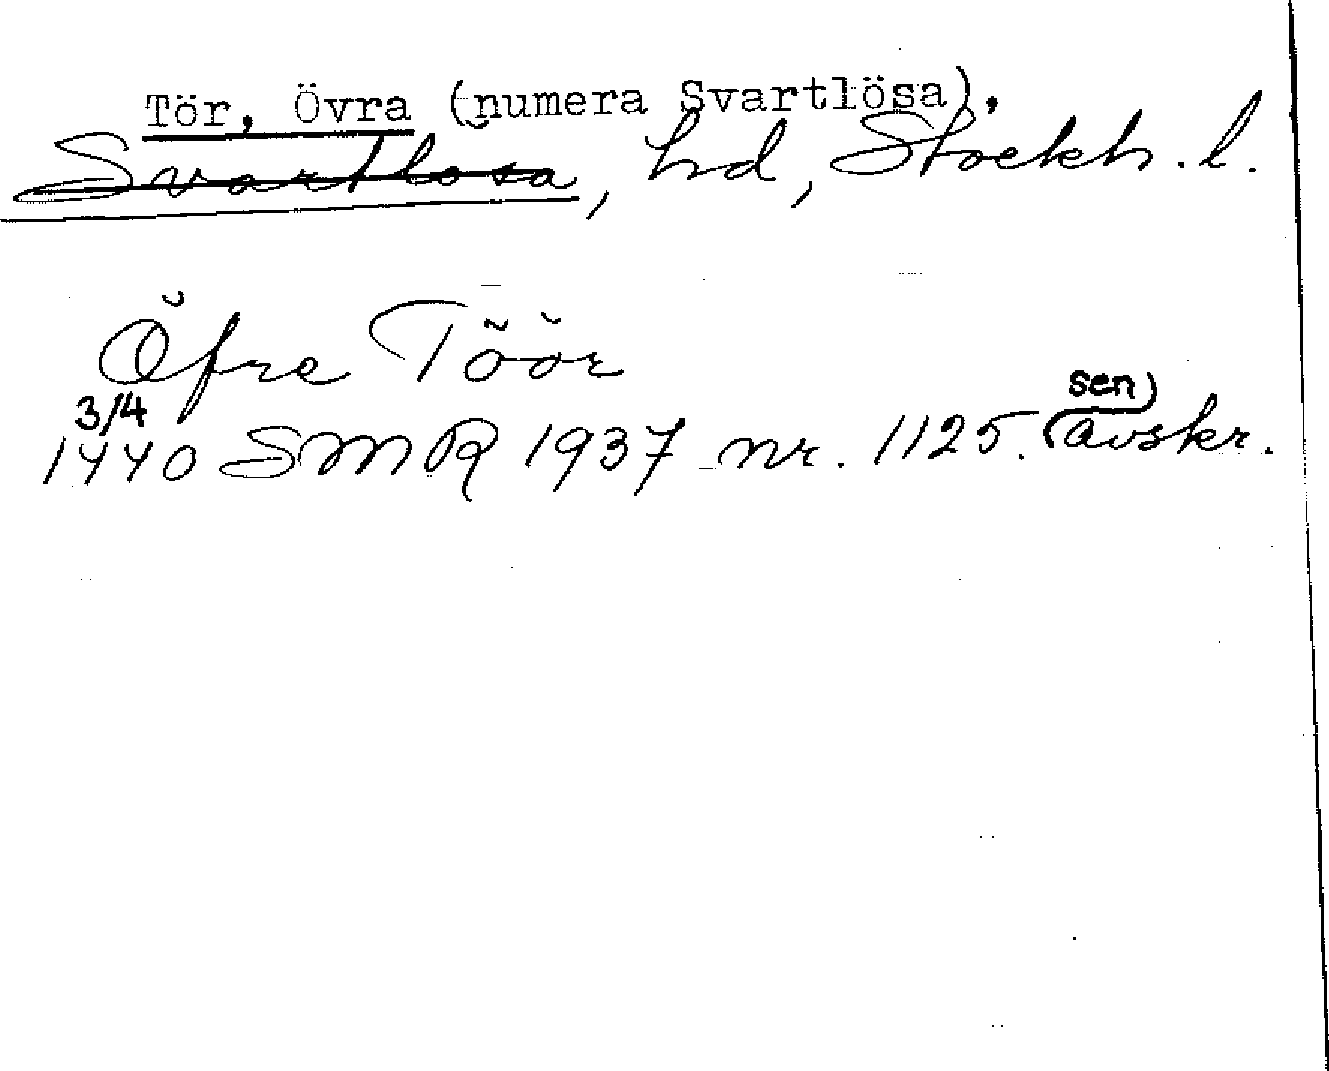 Tör, Övra (numera Svartlösa).
Svartlosa, hd, Stockh. l.
Öfre Töör
3/4
1440 SMR 1937 nr. 1125. (sen)
avskr.